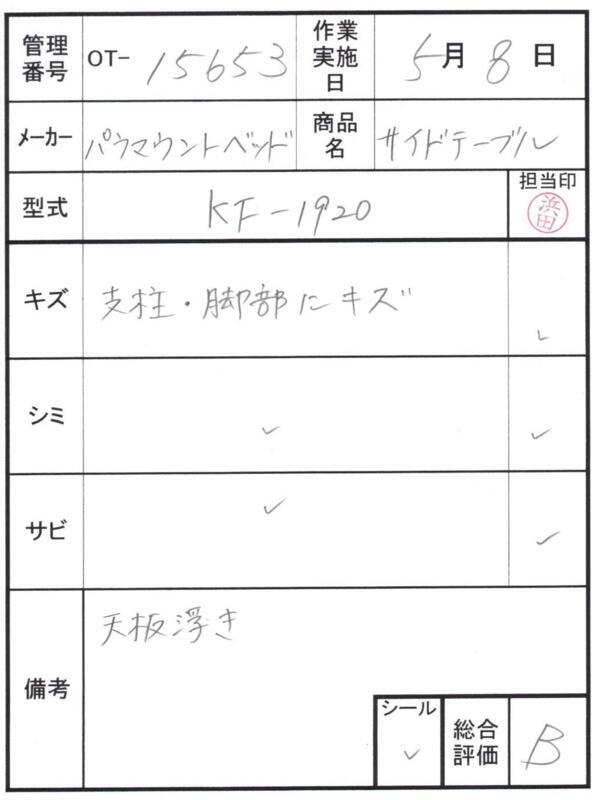 管理番号 OT- 15653 作業実施日 5月8日
メーカー パラマウントベッド 商品名 サイドテーブル
型式 KF-1920 担当印 浜田
キズ 支柱・脚部にキズ ✓
シミ ✓ ✓
サビ ✓ ✓
備考 天板浮き
シール ✓ 総合評価 B